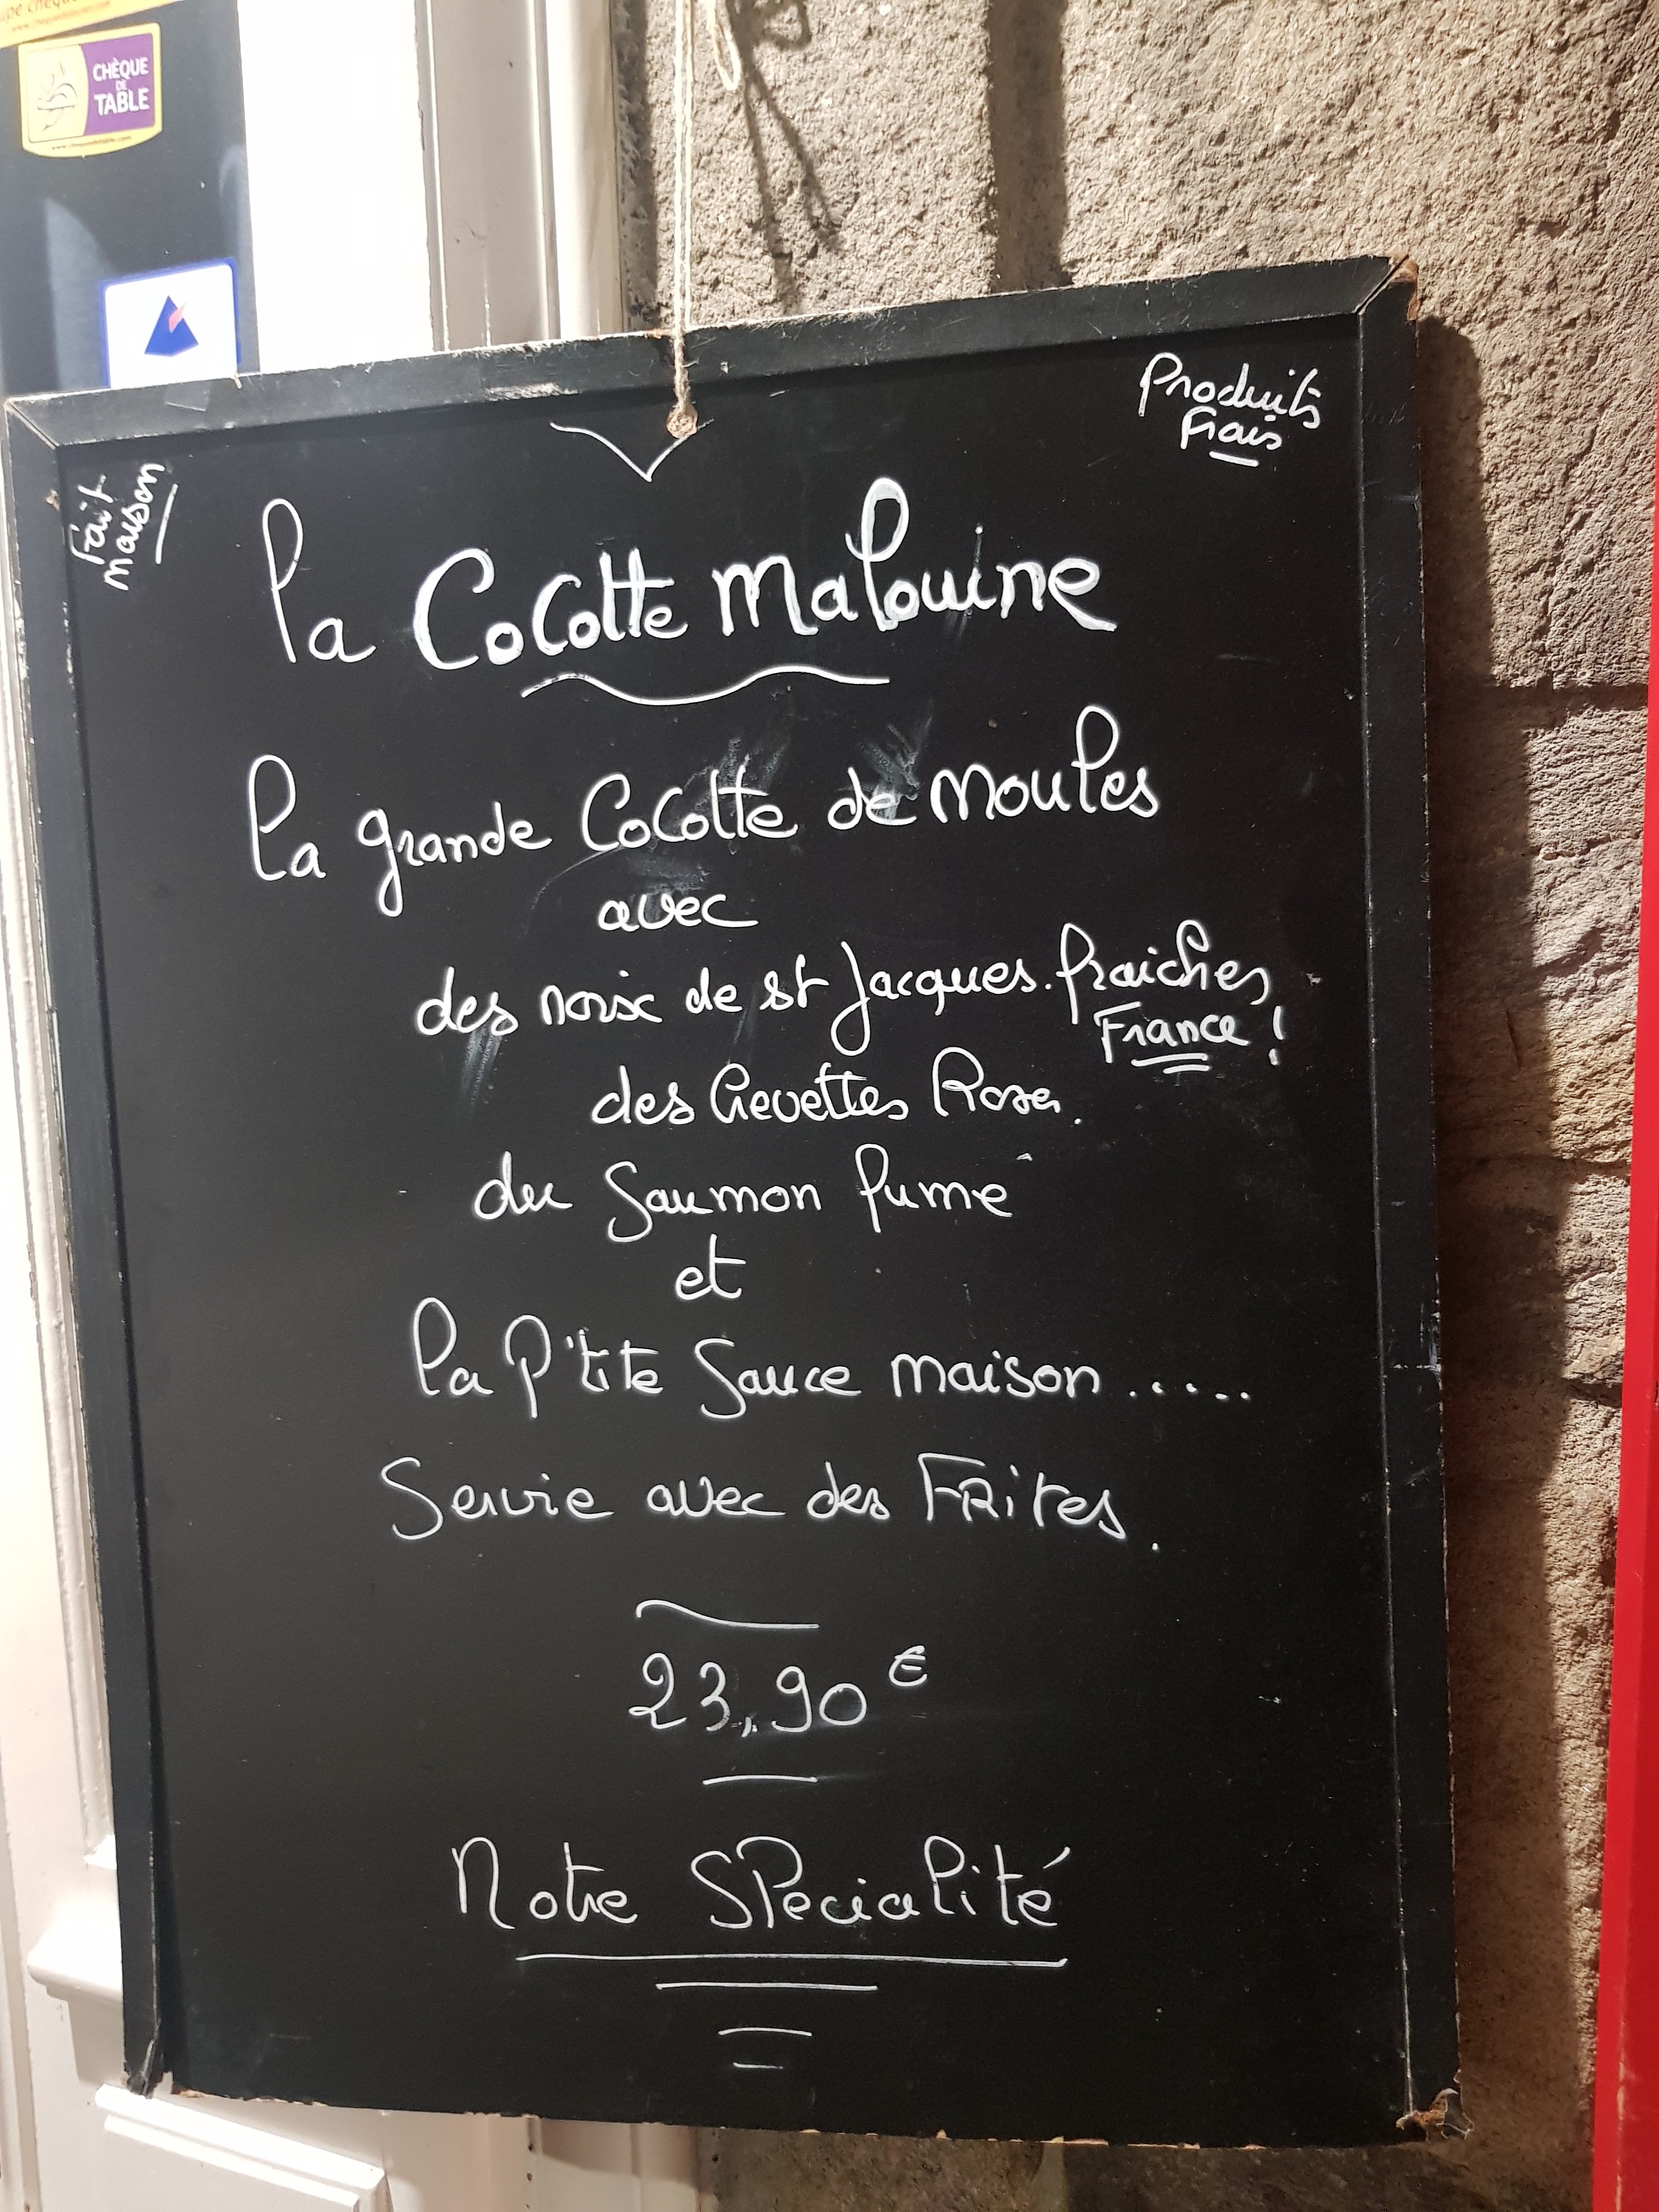 CHÈQUE
DE
TABLE
Produits
Frais
Fait
maison
La Cocotte Malouine
La grande Cocotte de Moules
avec
des noix de st Jacques. fraiches
France !
des Crevettes Roses.
du Saumon fumé
et
la P'tite Sauce maison.....
Servie avec des FRites.
23,90 €
Notre SPécialité